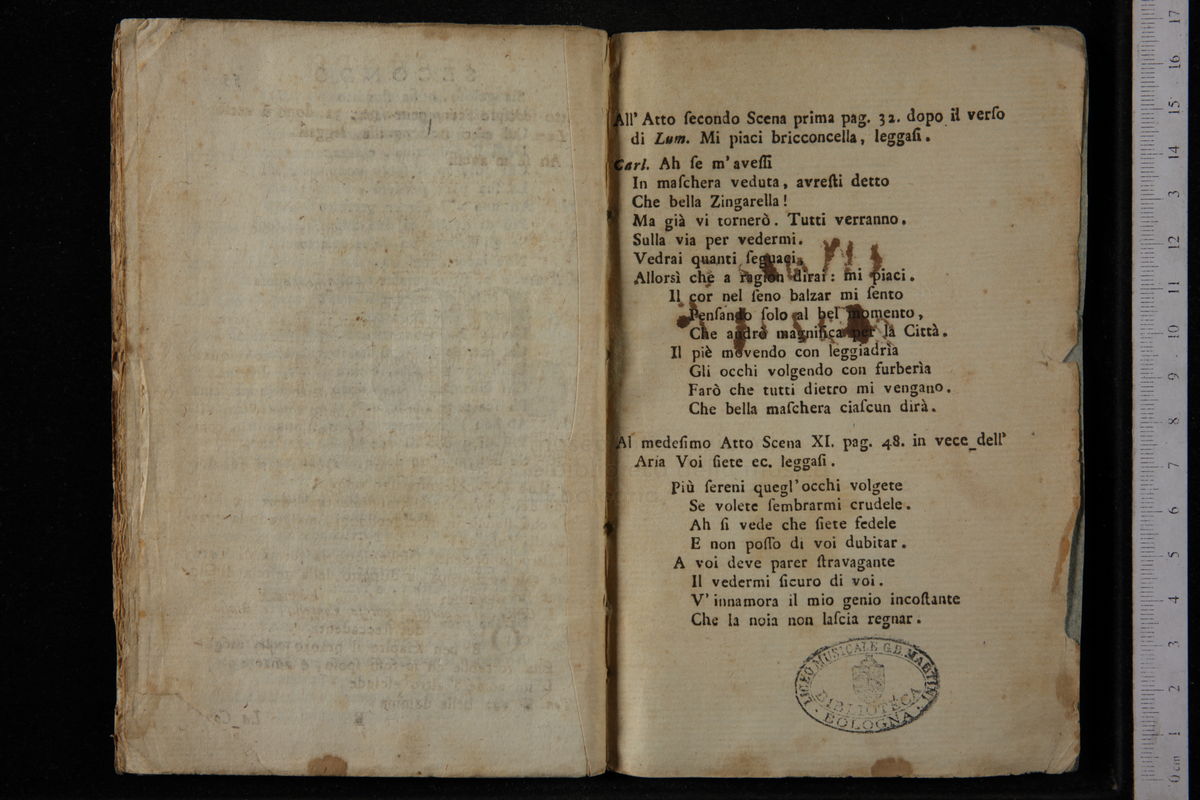 All' Atto ſecondo Scena prima pag. 32. dopo il verſo
di Lum. Mi piaci bricconcella, leggaſi.
Carl. Ah ſe m'aveſſi
In maſchera veduta, avreſti detto
Che bella Zingarella!
Ma già vi tornerò. Tutti verranno.
Sulla via per vedermi.
Vedrai quanti ſeguaci.
Allorsì che a ragion dirai: mi piaci.
Il cor nel ſeno balzar mi ſento
Penſando ſolo al bel momento,
Che andrò magnifica per la Città.
Il piè movendo con leggiadrìa
Gli occhi volgendo con furberìa
Farò che tutti dietro mi vengano.
Che bella maſchera ciaſcun dirà.
Al medeſimo Atto Scena XI. pag. 48. in vece dell'
Aria Voi ſiete ec. leggaſi.
Più ſereni quegl'occhi volgete
Se volete ſembrarmi crudele.
Ah ſi vede che ſiete fedele
E non poſſo di voi dubitar.
A voi deve parer ſtravagante
Il vedermi ſicuro di voi.
V'innamora il mio genio incoſtante
Che la noia non laſcia regnar.
LICEO MUSICALE G.B. MARTINI
BIBLIOTECA
BOLOGNA
17
16
15
14
3
12
11
10
9
8
7
6
5
4
3
2
1
0 cm